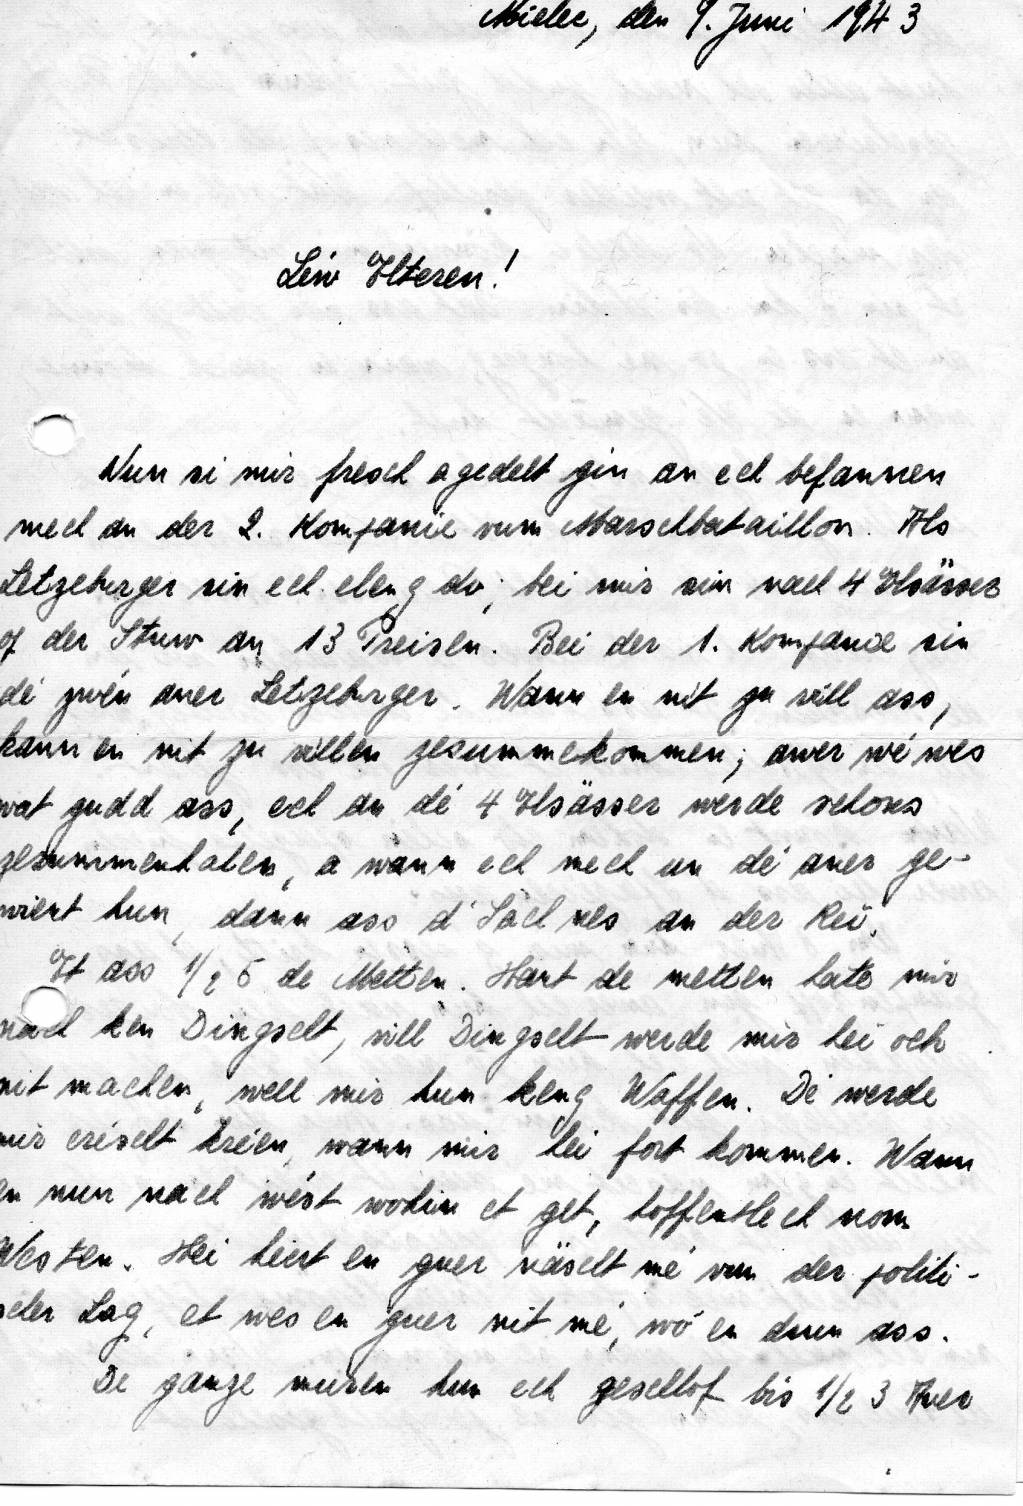 Mielec, den 9. Juni 1943
Léiw Elteren!
Nun si mir fresch agedelt gin an ech befannen
mech an der 2. Kompanie vum Marschbataillon. Als
Letzeburger sin ech eleng do; bei mir sin nach 4 Elsässer
of der Stuw an 13 Preisen. Bei der 1. Kompanie sin
dé zwén aner Letzeburger. Wann en nit zu vill ass,
kann en nit zu villen zesummekommen; awer wé wes
wat gudd ass, ech an dé 4 Elsässer werde schons
zesummenhalen, a wann ech mech un dé aner ge-
wient hun, dann ass d'Sach nes an der Rei.
Et ass 1/2 6 de Metten. Haut de metten hate mir
nach ken Dingscht, vill Dingscht werde mir hei och
nit machen, well mir hun keng Waffen. Dé werde
mir eréischt kréien, wann mir hei fort kommen. Wann
en nun nach wést wohin et get, hoffentlech nom
Westen. Hei héert en guer näischt mé vun der politi-
scher Lag, et wes en guer nit mé, wó en drun ass.
De ganze muren hun ech geschlof bis 1/2 3 Auer